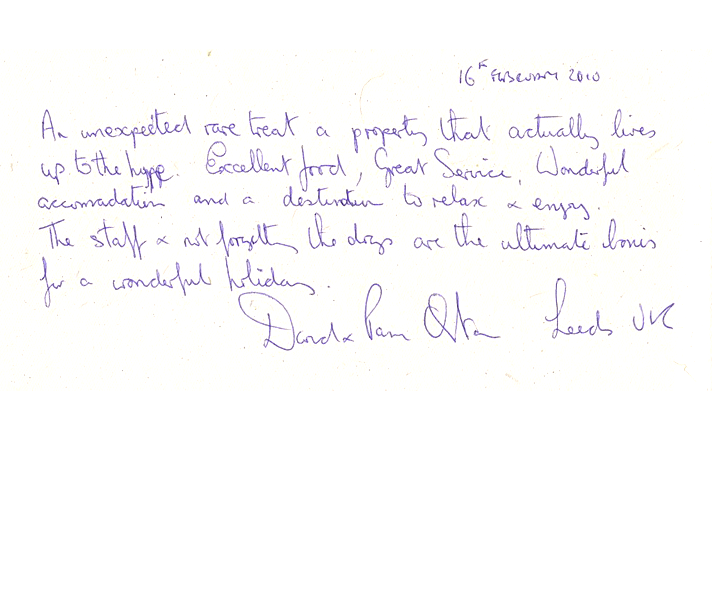 16th FEBRUARY 2010
An unexpected rare treat a property that actually lives
up to the hype. Excellent food, Great Service, Wonderful
accomadation and a destination to relax & enjoy.
The staff & not forgetting the dogs are the ultimate bonus
for a wonderful holiday.
David & Pam Leeds UK